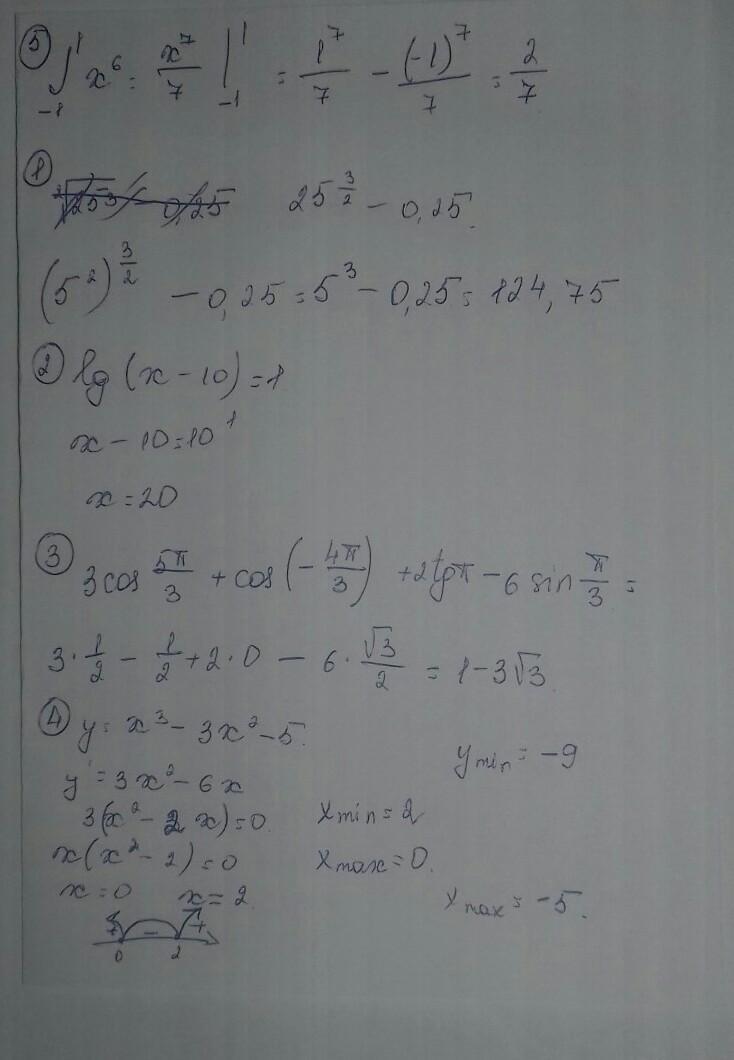 ⑤ ∫₋₁¹ x⁶ = x⁷/7 |₋₁¹ = 1⁷/7 - (-1)⁷/7 = 2/7
① 25^(3/2) - 0,25.
(5²)^(3/2) - 0,25 = 5³ - 0,25 = 124,75
② lg (x - 10) = 1
x - 10 = 10¹
x = 20
③ 3cos 5π/3 + cos (-4π/3) + 2tgπ - 6 sin π/3 =
3 · 1/2 - 1/2 + 2 · 0 - 6 · √3/2 = 1 - 3√3
④ y = x³ - 3x² - 5.
y' = 3x² - 6x
3(x² - 2x) = 0.
x(x² - 2) = 0
x = 0 x = 2
+ - +
0 2
x min = 2
x max = 0.
y min = -9
y max = -5.